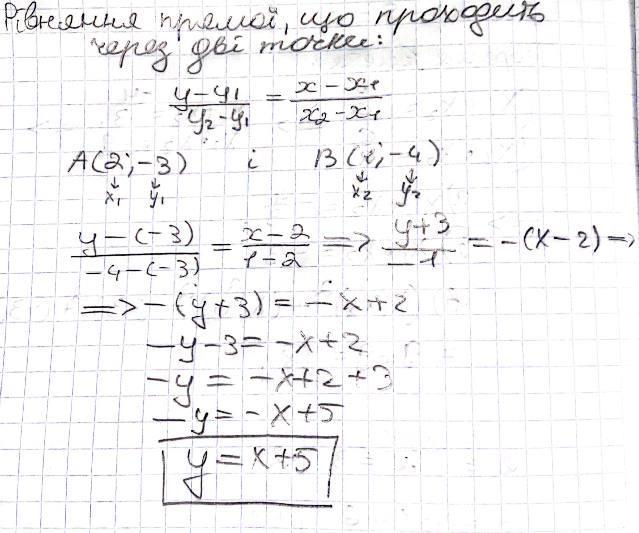 Рівняння прямої, що проходить
через дві точки:
(y-y₁)/(y₂-y₁) = (x-x₁)/(x₂-x₁)
A(2;-3) і B(1;-4)
x₁ y₁ x₂ y₂
(y-(-3))/(-4-(-3)) = (x-2)/(1-2) => (y+3)/(-1) = -(x-2) =>
=> -(y+3) = -x+2
-y-3=-x+2
-y = -x+2+3
-y=-x+5
y=x+5